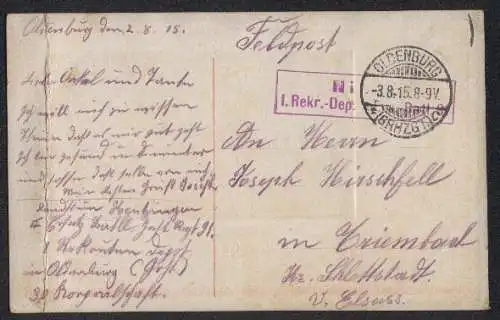 Oldenburg den 2.8.15.
Feldpost
Onkel und Tante
ich will euch zu wissen
thuen daß es mir gut geht
ich bin gesund und munter
und hoffe daß selbe von euch
Landsturm
Ersatz Batll. Inft Regt 91.
1 Rekruten Depot
in Oldenburg (Grßh)
30 Korporalschaft.
I. Rekr.-Dep.
OLDENBURG
-3.8.15.8-9V.
(GRHZGT.)
An Herrn
Joseph Hirschfell
in Triembach
Kr. Schlettstadt.
U. Elsass.